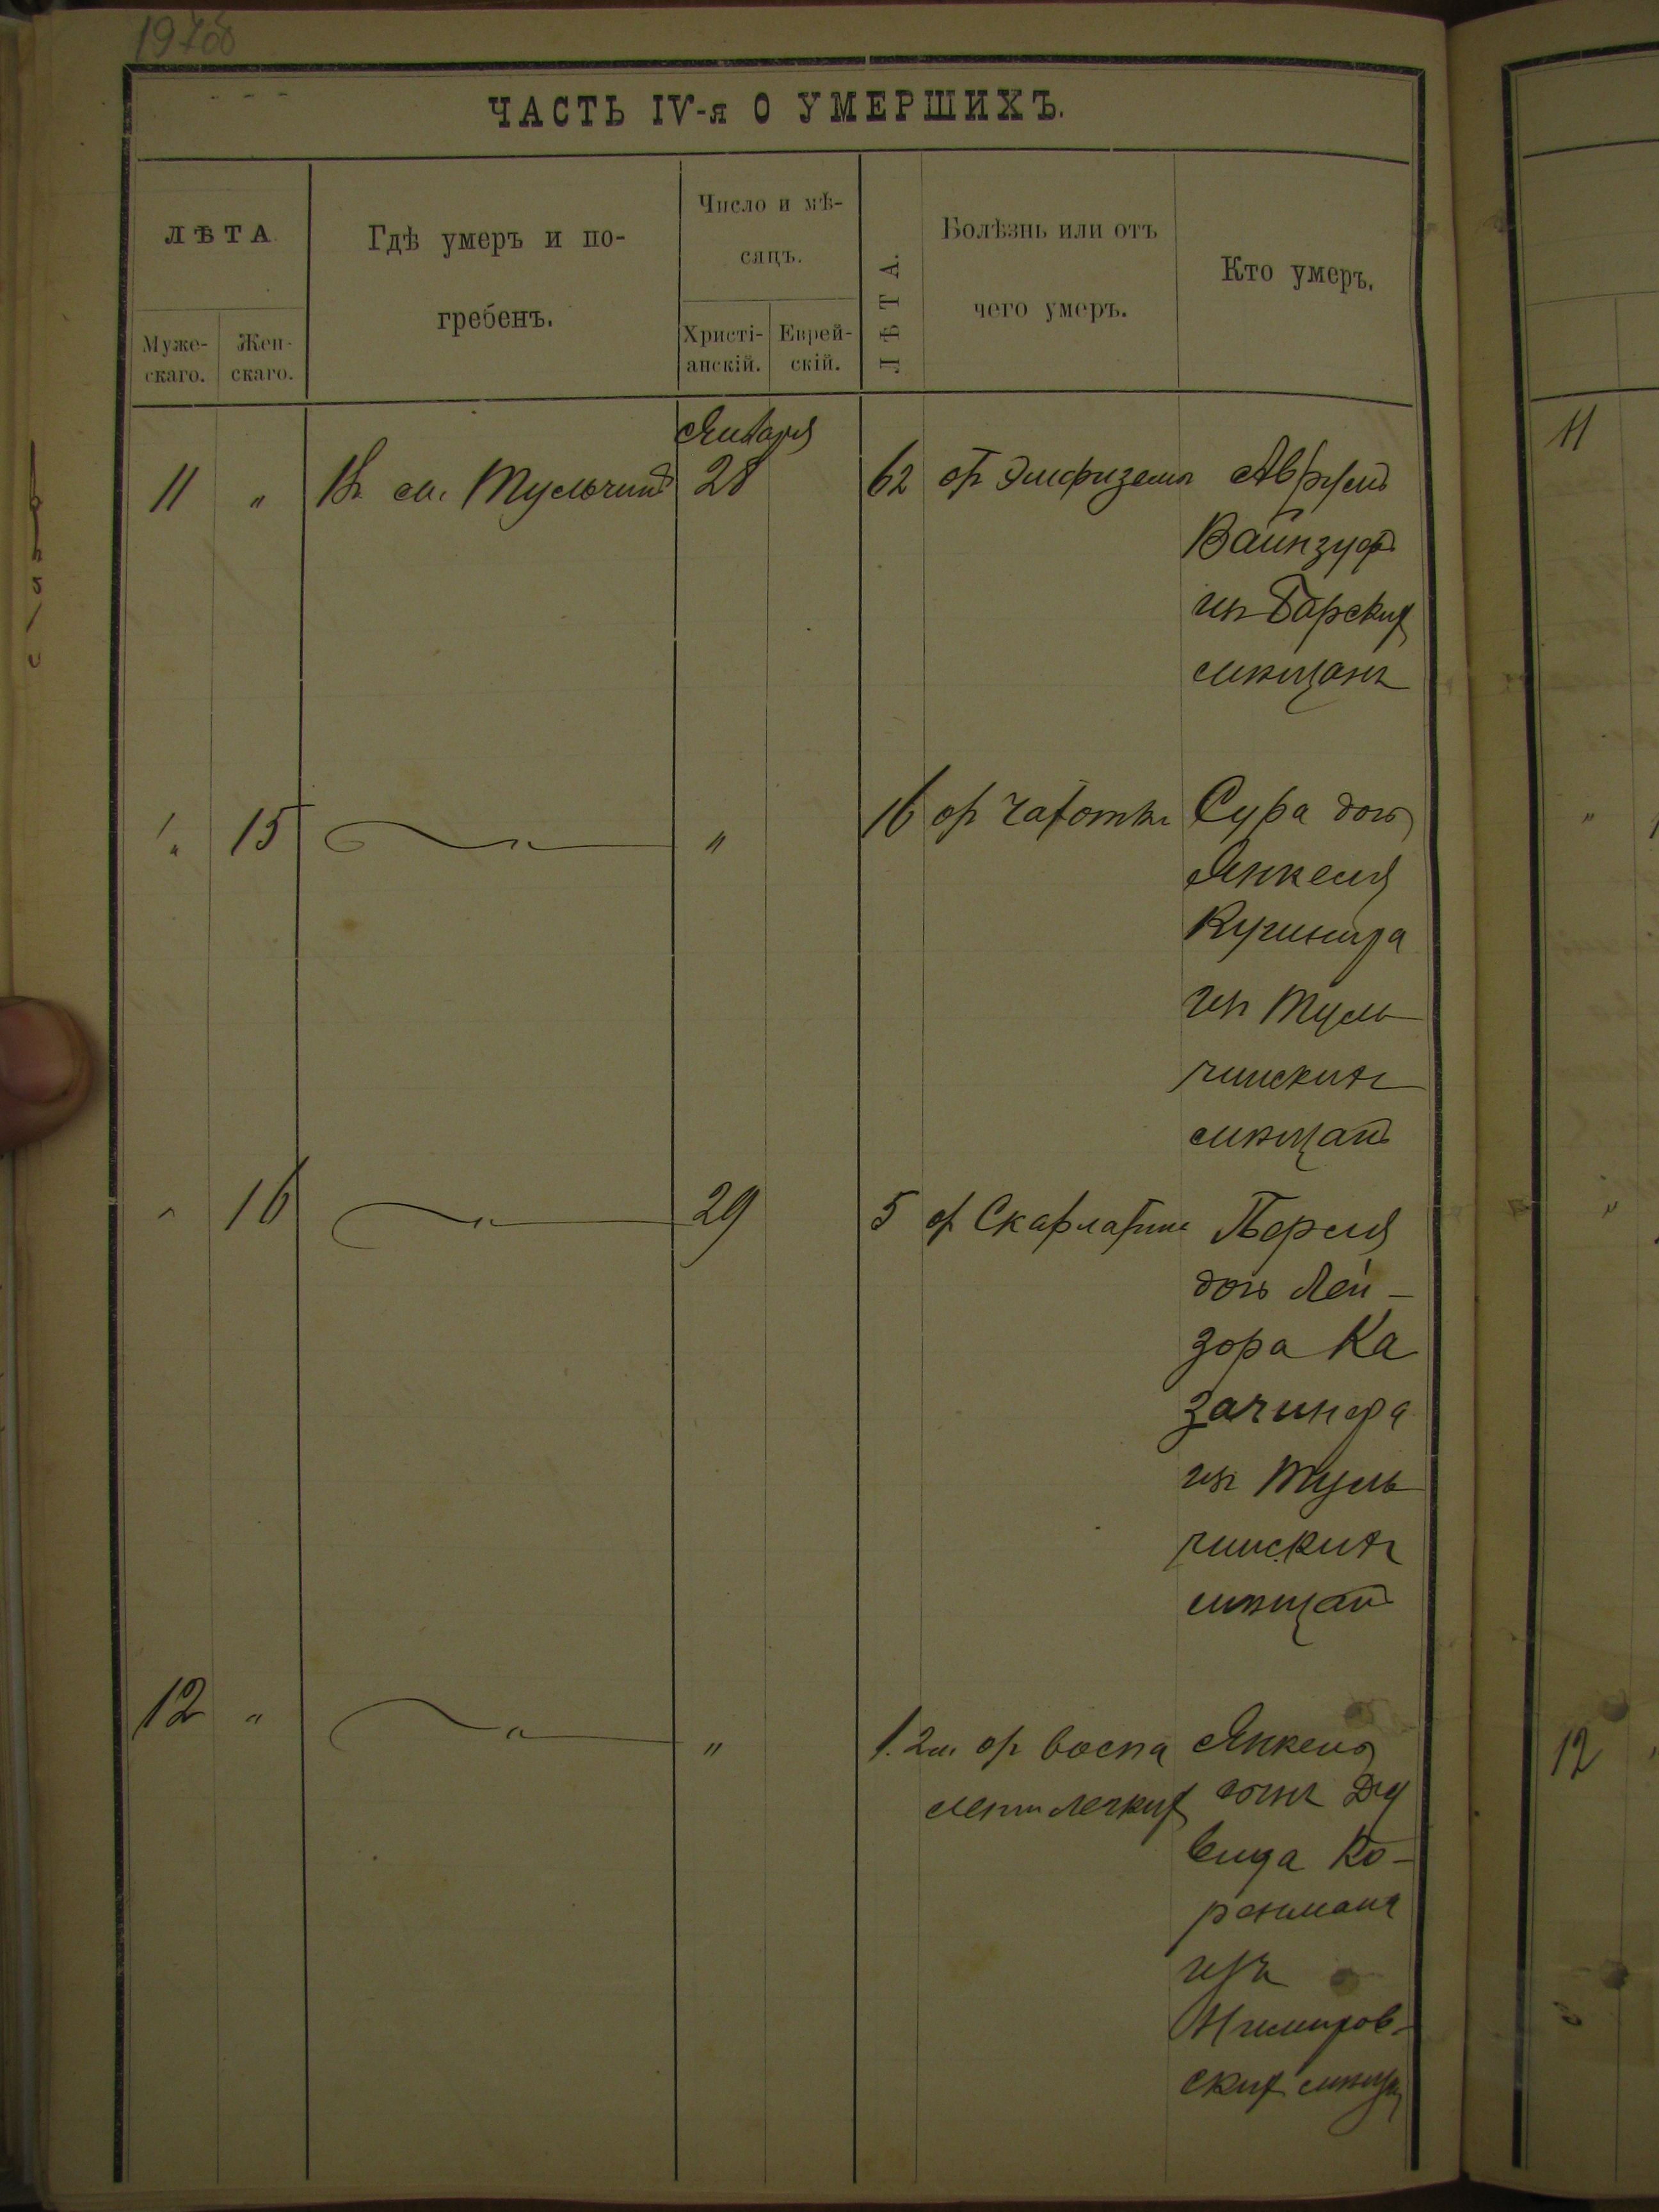 ЧАСТЬ IV-я О УМЕРШИХЪ.
ЛѢТА
Муже-
скаго.
Жен-
скаго.
Гдѣ умеръ и по-
гребенъ.
Число и мѣ-
сяцъ.
Христі-
анскій.
Еврей-
скій.
ЛѢТА.
Болѣзнь или отъ
чего умеръ.
Кто умеръ.
Января
11 " Въ м. Тульчинѣ 28 62 от эмфиземы Аврумъ
Вайнзуфъ
изъ Барских
мѣщанъ
" 15 " " 16 от чахотки Сура дочь
Янкеля
Кушнира
изъ Туль
чинскихъ
мѣщанъ
" 16 " 29 5 от Скарлатины Перля
дочь Лей-
зора Ка
зачинера
изъ Туль
чинскихъ
мѣщанъ
12 " " " 1.2м. от воспа Янкель
лени легких сынъ Ду
вида Ко-
ренмана
изъ
Нимиров-
ских мѣщан
11
"
"
12